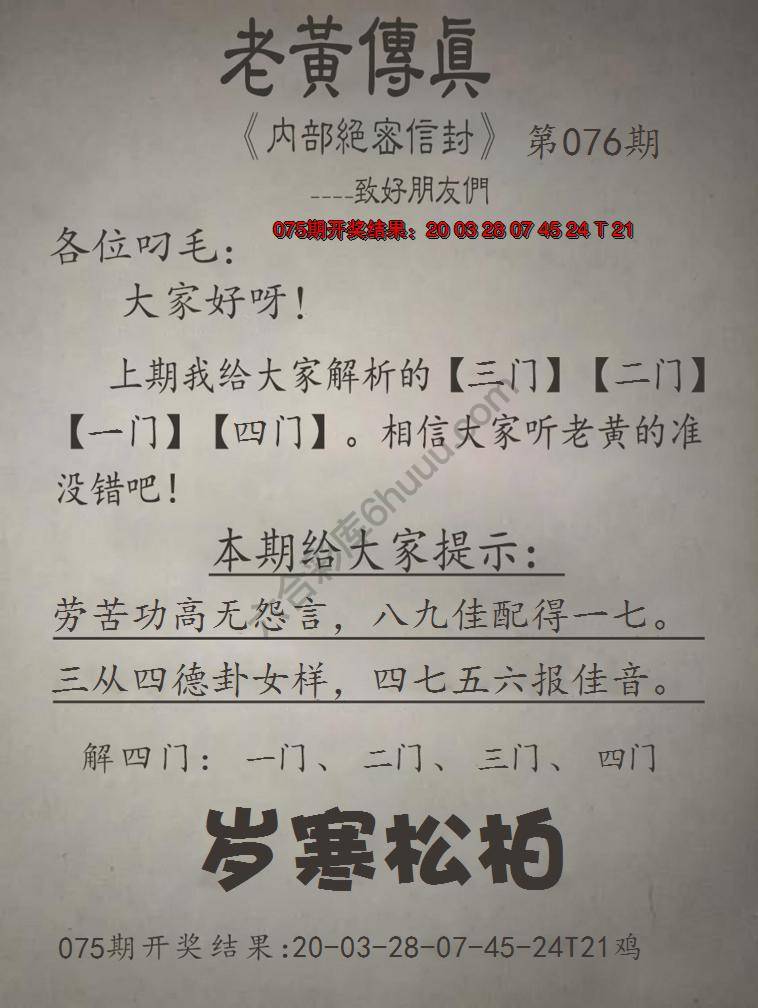 老黃傳眞
《内部絕密信封》 第076期
----致好朋友們
075期开奖结果：20 03 28 07 45 24 T 21
各位叼毛：
大家好呀！
上期我给大家解析的【三门】【二门】
【一门】【四门】。相信大家听老黄的准
没错吧！
六合彩库6huuu.com
本期给大家提示：
劳苦功高无怨言，八九佳配得一七。
三从四德卦女样，四七五六报佳音。
解四门： 一门、 二门、 三门、 四门
岁寒松柏
075期开奖结果:20-03-28-07-45-24T21鸡